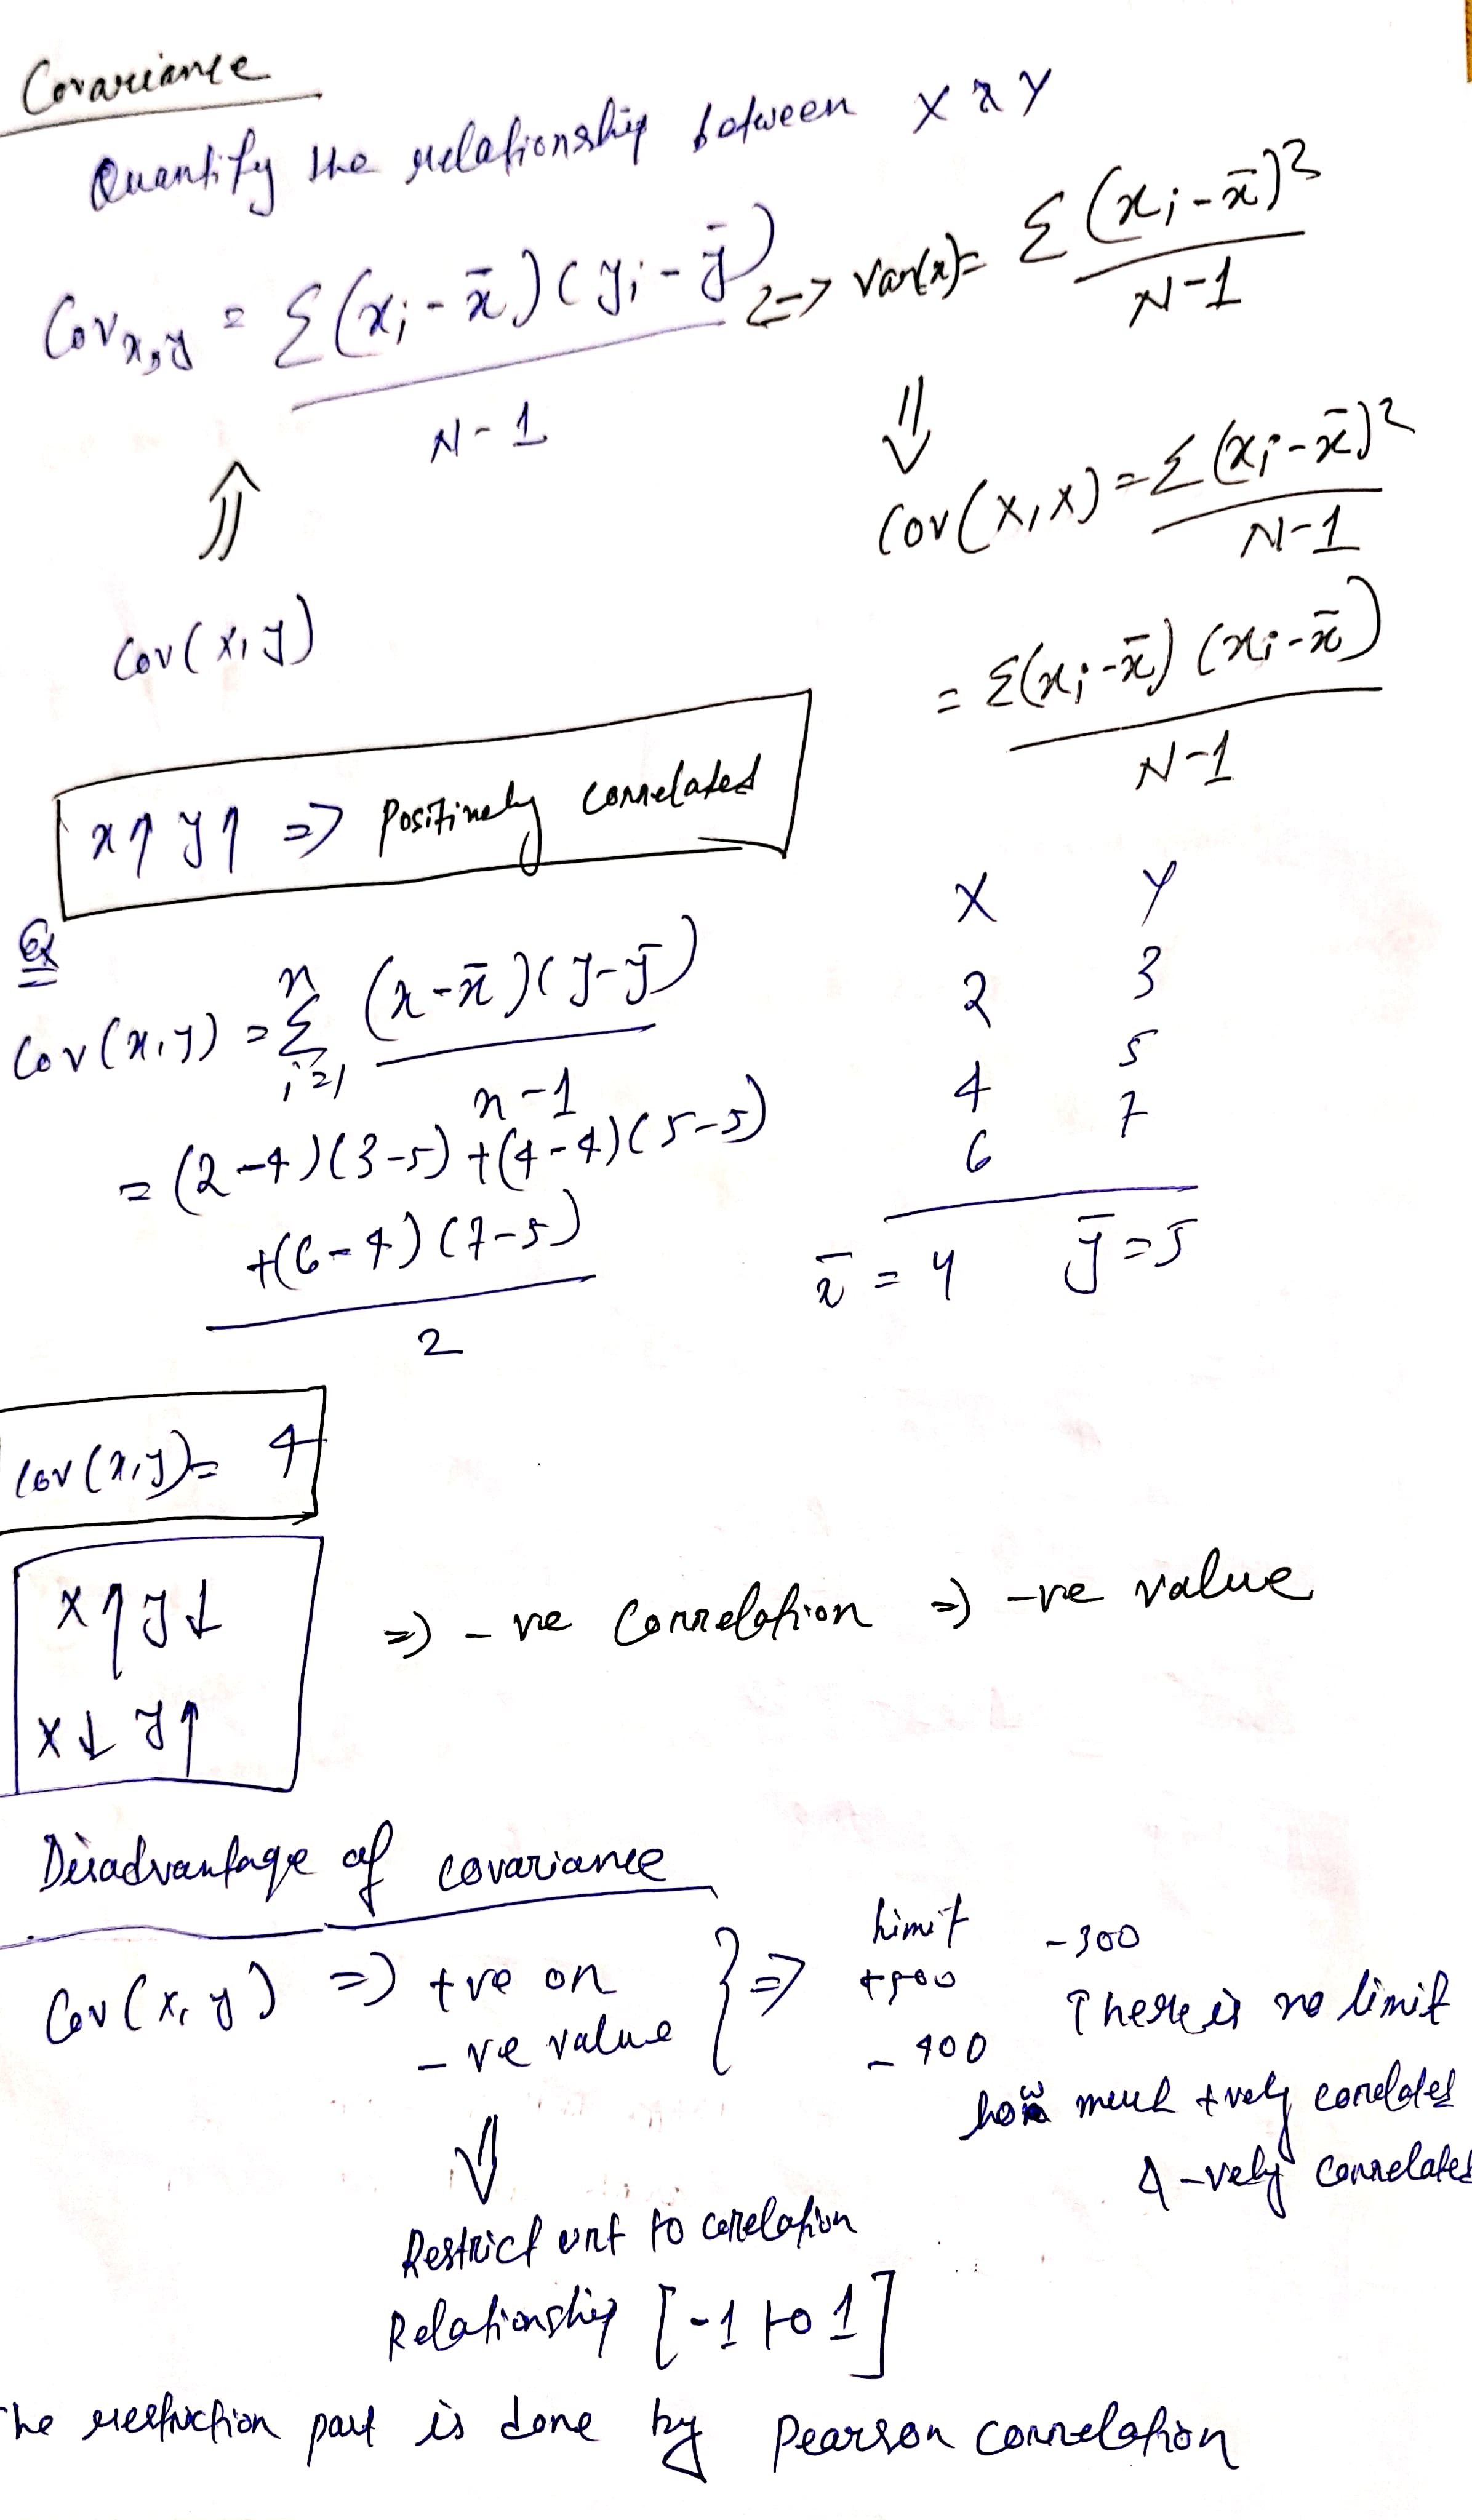 Covariance
Quantify the relationship between X & Y
Cov x,y = Σ(xi - x̄)(yi - ȳ) / N-1 <-> Var(x) = Σ(xi - x̄)² / N-1
⇑ ⇓
Cov(x,y) Cov(x,x) = Σ(xi - x̄)² / N-1
= Σ(xi - x̄)(xi - x̄) / N-1
x↑ y↑ => Positively correlated
Ex
X Y
2 3
4 5
6 7
x̄ = 4 ȳ = 5
Cov(x,y) = Σ i=1 n (x - x̄)(y - ȳ) / n-1
= (2-4)(3-5) + (4-4)(5-5)
+(6-4)(7-5) / 2
Cov(x,y) = 4
X↑ y↓
X↓ y↑
=> -ve correlation => -ve value
Disadvantage of covariance
Cov(x,y) => +ve or
-ve value
} =>
limit
-300
+500
-400
There is no limit
how much +vely correlated
& -vely correlated
⇓
Restrict to correlation
Relationship [-1 to 1]
The restriction part is done by Pearson correlation